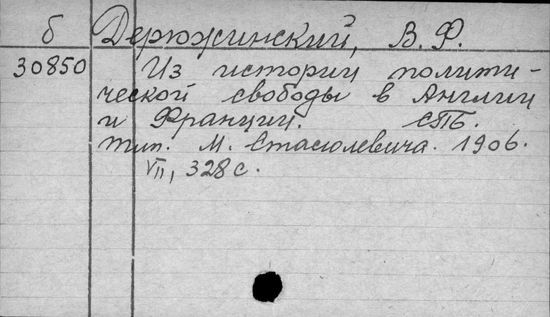 б Дерюжинский, В. Ф.
30850 Из истории полити-
ческой свободы в Англии
и Франции. СПБ.
тип. М. Стасюлевича. 1906.
VII, 328 с.